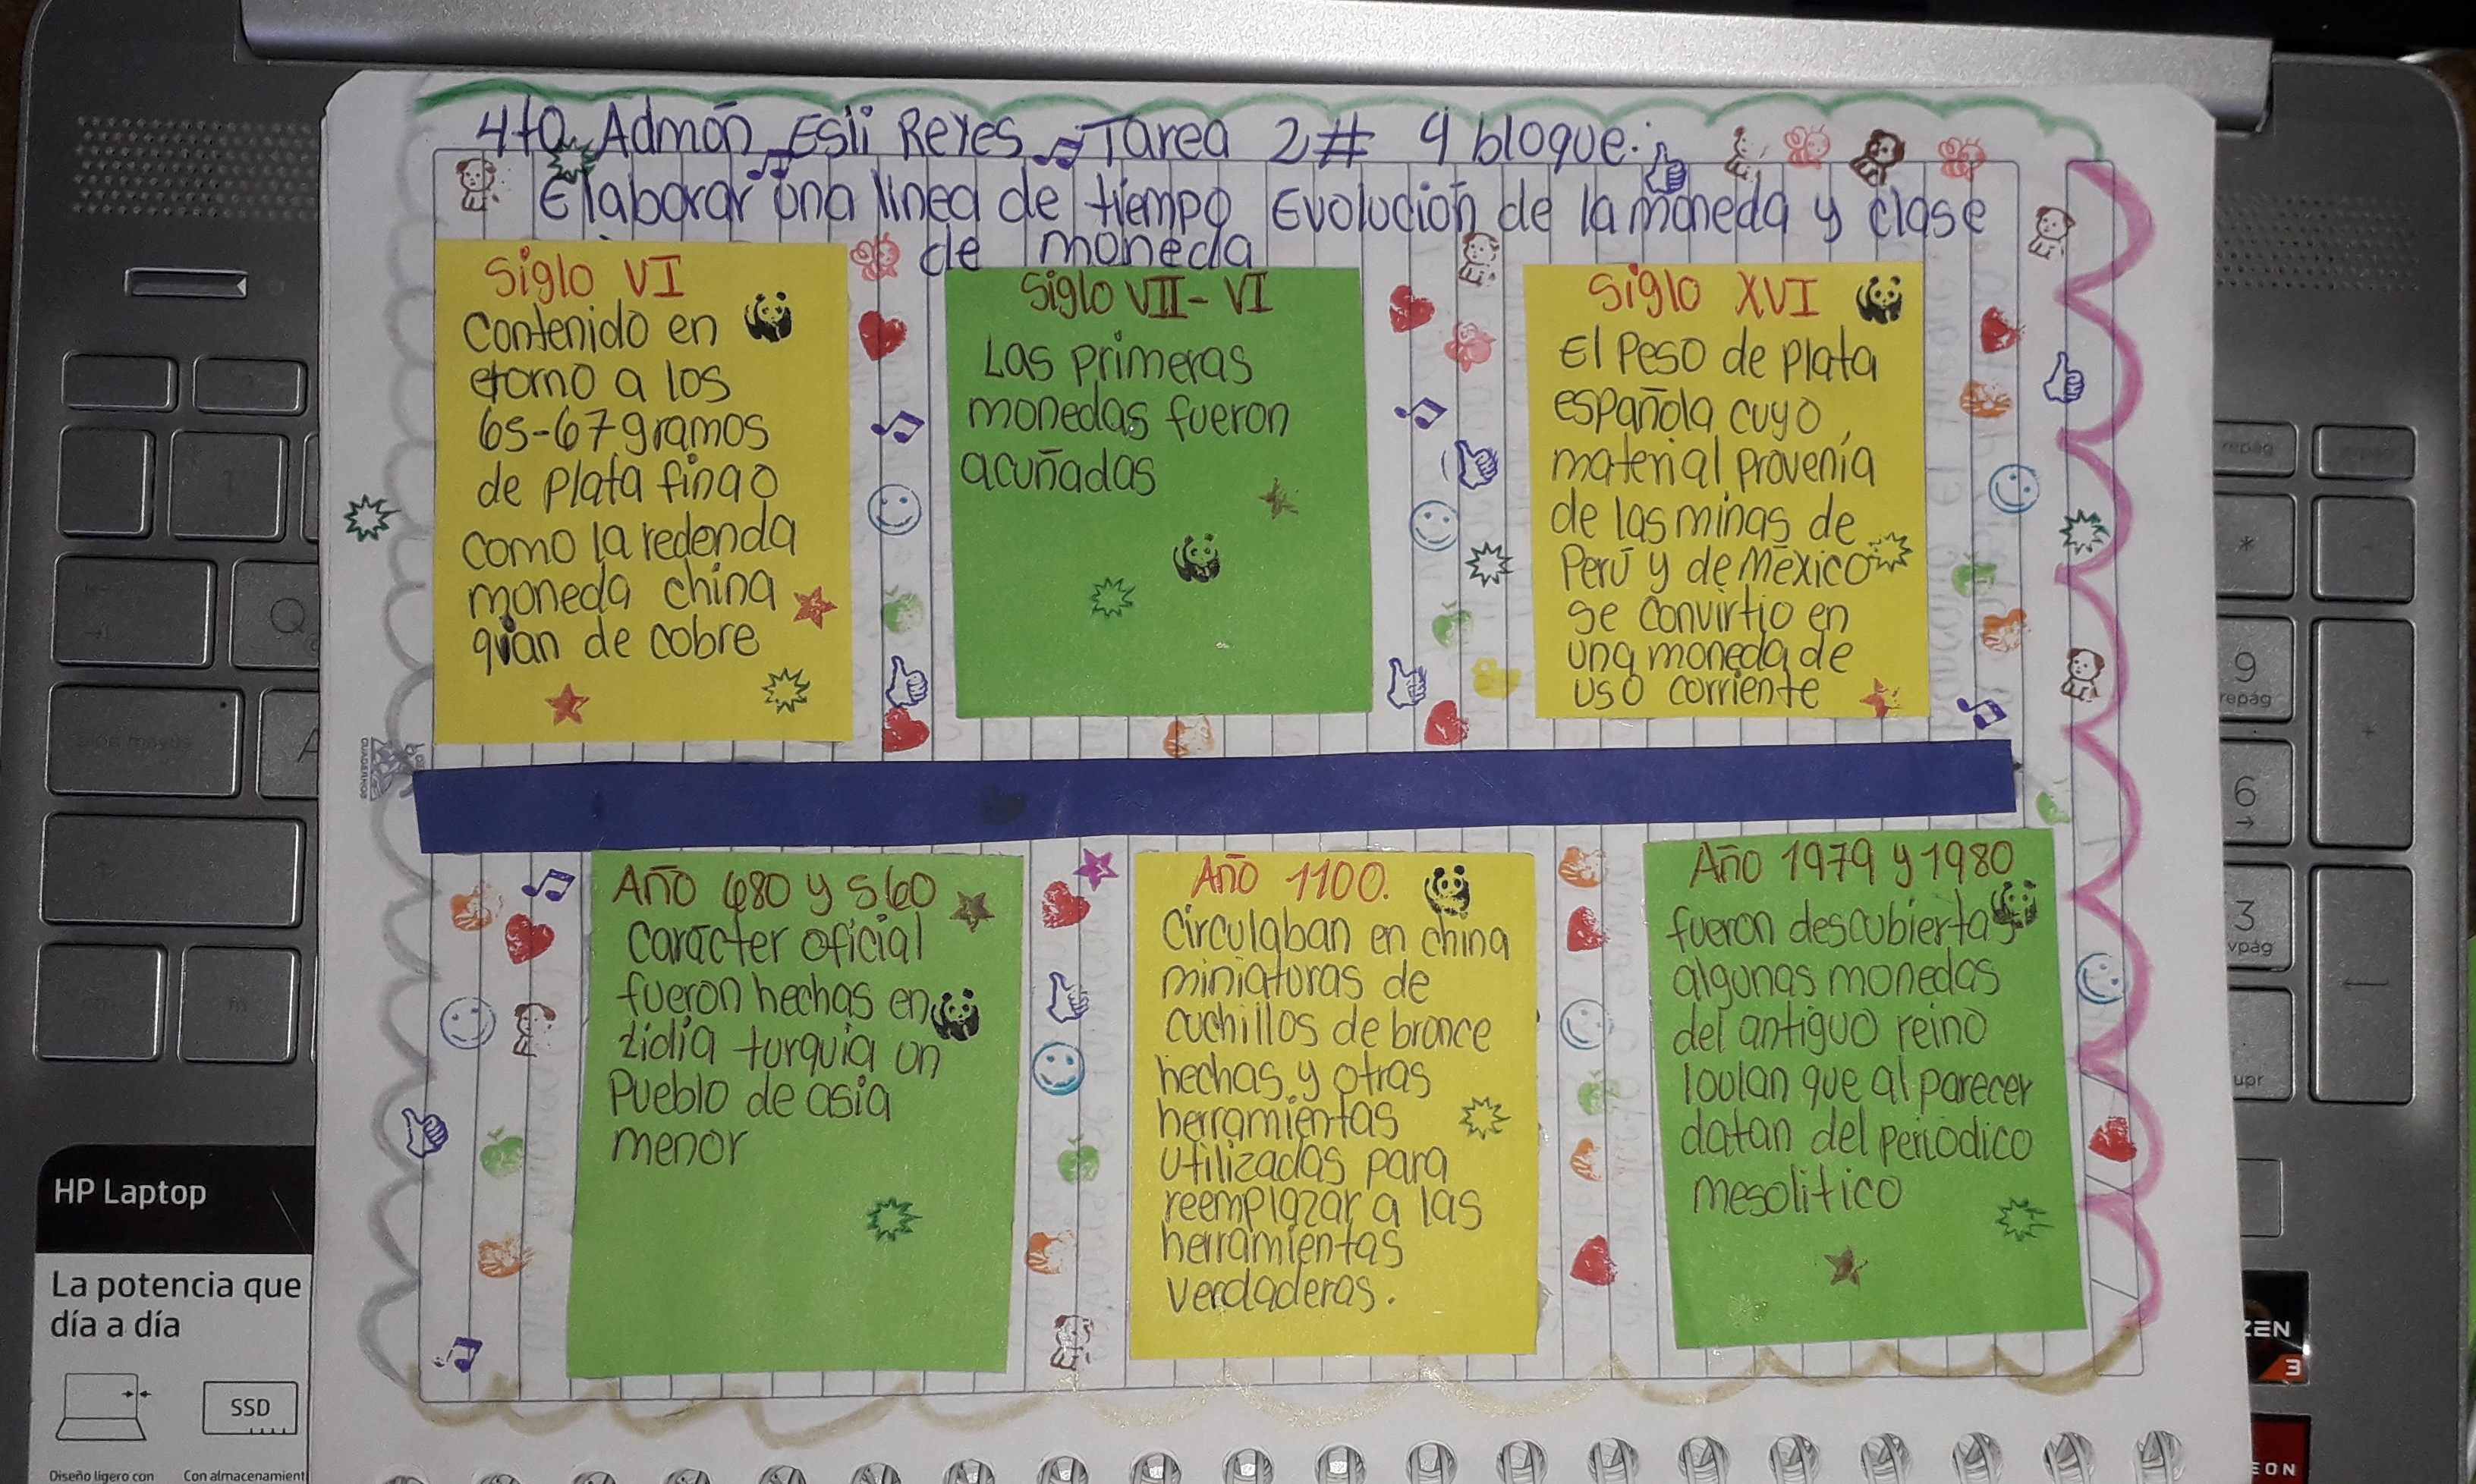 4to Admón Esli Reyes Tarea 2# 4 bloque.
Elaborar una linea de tiempo Evolución de la moneda y clase
de moneda
Siglo VI
Contenido en
etorno a los
65-67 gramos
de plata fina o
como la redonda
moneda china
quian de cobre
Siglo VII - VI
Las primeras
monedas fueron
acuñadas
Siglo XVI
El Peso de plata
española cuyo
material provenía
de las minas de
Perú y de México
se convirtio en
una moneda de
uso corriente
Año 680 y 560
Carácter oficial
fueron hechas en
Lidia turquia un
Pueblo de asia
menor
Año 1100.
Circulaban en china
miniaturas de
cuchillos de bronce
hechas y otras
herramientas
utilizadas para
reemplazar a las
herramientas
verdaderas.
Año 1979 y 1980
fueron descubiertas
algunas monedas
del antiguo reino
loulan que al parecer
datan del periodico
mesolitico
HP Laptop
La potencia que
día a día
SSD
Diseño ligero con
Con almacenamient
Q
A
repág
*
9
repág
6
3
vpág
upr
ZEN
3
EON